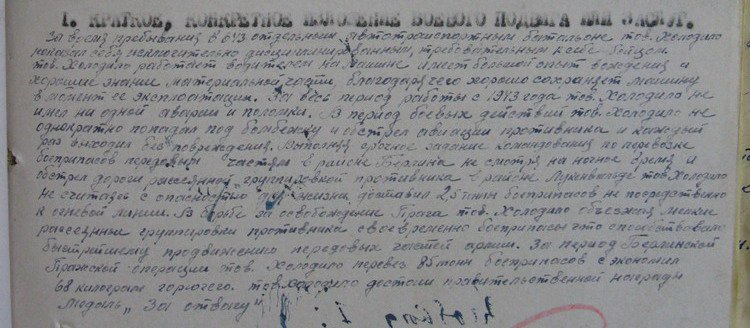 I. КРАТКОЕ, КОНКРЕТНОЕ ИЗЛОЖЕНИЕ БОЕВОГО ПОДВИГА ИЛИ ЗАСЛУГ.
За время пребывания в 643 отдельном автотранспортным батальоне тов. Холодило
показал себя исключительно дисциплинированным, требовательным к себе бойцом
тов. Холодило работает водителем на машине имеет большой опыт вождения и
хорошие знание материальной части, благодаря чего хорошо сохраняет машину
в момент ее эксплоатации. За весь период работы с 1943 года тов. Холодило не
имел на одной аварии и поломки. В период боевых действий тов. Холодило не
однократно попадал под бомбежку и обстрел авиации противника и каждый
раз выходил без повреждения. Выполняя срочное задание командования по перевозке
боеприпасов передовым частям в районе Берлина не смотря на ночное время и
обстрел дороги рассеянной группировкой противника в районе Лукенвальде тов. Холодило
не считаясь с опасностью для жизни доставил 2,5 тонн боеприпасов не посредственно
к огневой линии. В борьбе за освобождение Прага тов. Холодило объезжая мелкие
рассеянные группировки противника своевременно боеприпасы что способствовало
быстрейшему продвижению передовых частей армии. За период Берлинской
Пражской операции тов. Холодило перевез 85 тонн боеприпасов с экономил
68 килограм горючего. тов. Холодило достоин правительственной награды
медаль „За отвагу"